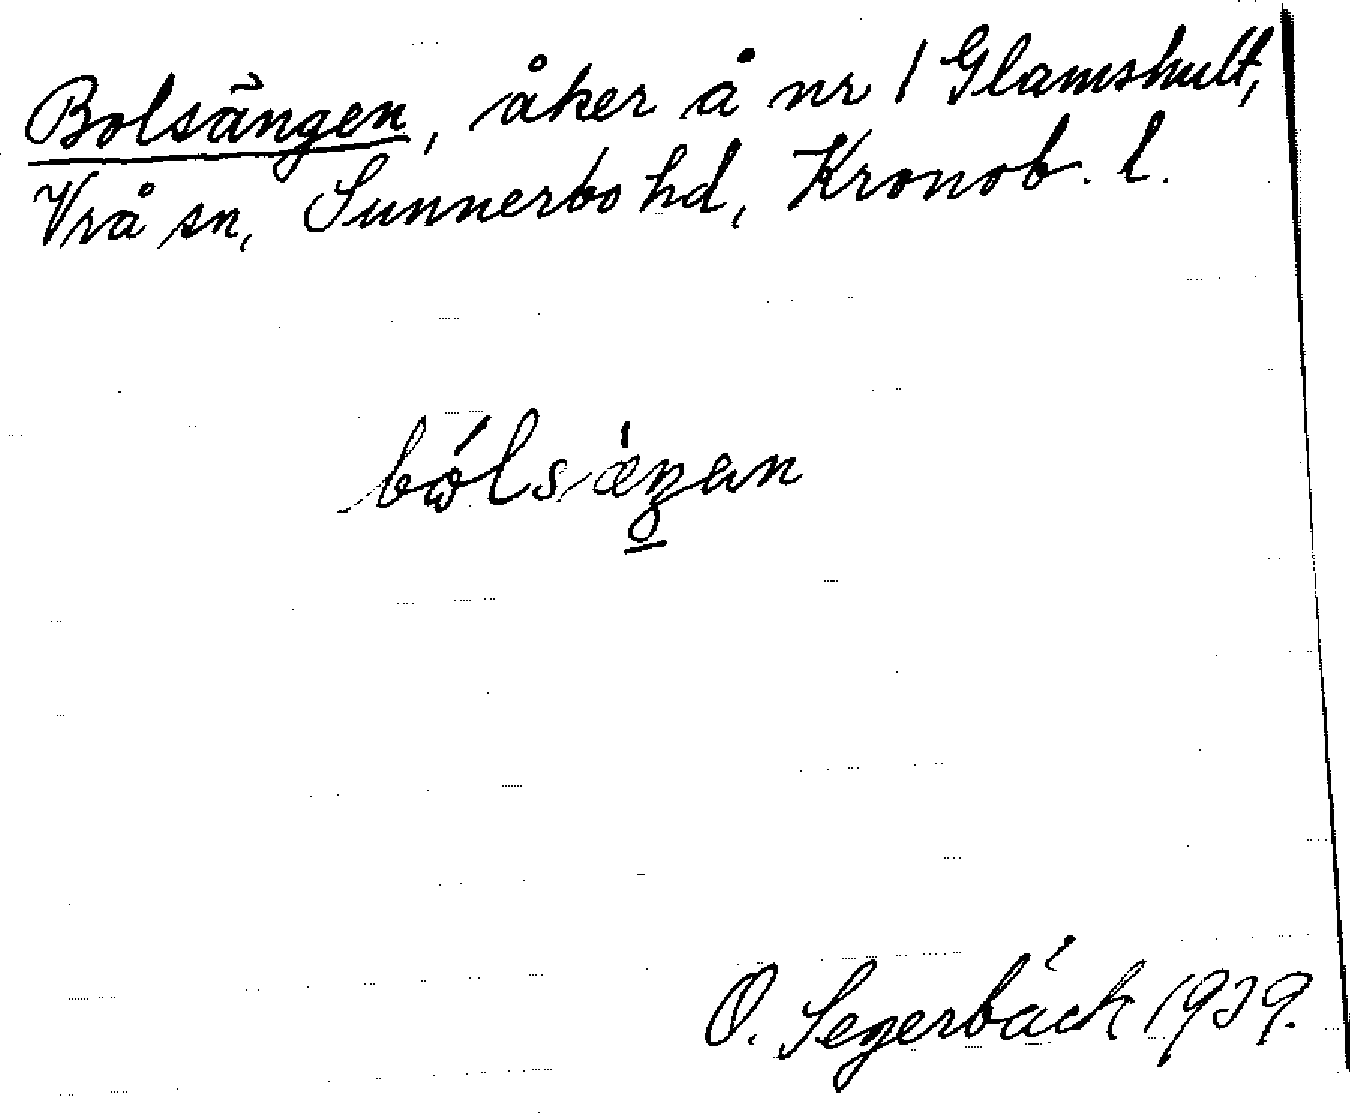 Bolsängen, åker å nr 1 Glamshult,
Vrå sn, Sunnerbo hd, Kronob. l.
O. Segerbäck 1939.